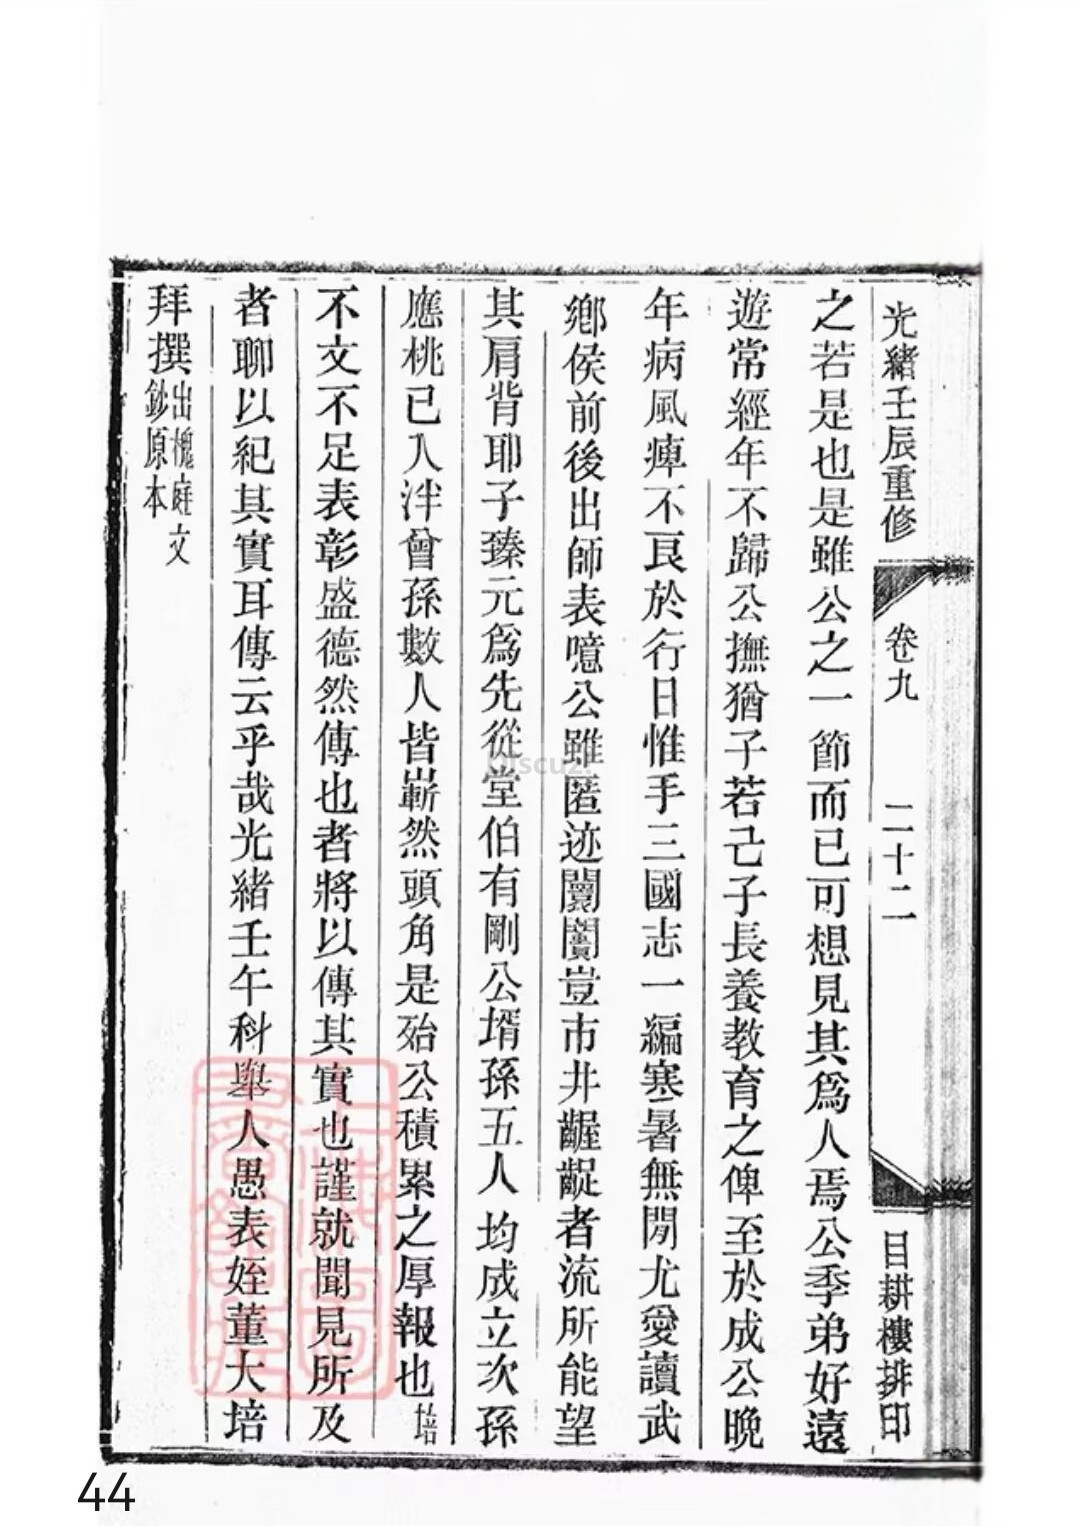 光緒壬辰重修
卷九
二十二
目耕樓排印
之若是也是雖公之一節而已可想見其爲人焉公季弟好遠
遊常經年不歸公撫猶子若己子長養教育之俾至於成公晚
年病風痺不良於行日惟手三國志一編寒暑無閒尤愛讀武
鄉侯前後出師表噫公雖匿迹闤闠豈市井齷齪者流所能望
其肩背耶子臻元爲先從堂伯有剛公壻孫五人均成立次孫
應桃已入泮曾孫數人皆嶄然頭角是殆公積累之厚報也培
不文不足表彰盛德然傳也者將以傳其實也謹就聞見所及
者聊以紀其實耳傳云乎哉光緒壬午科舉人愚表姪董大培
拜撰出槐庭文
鈔原本
Discuz!
44